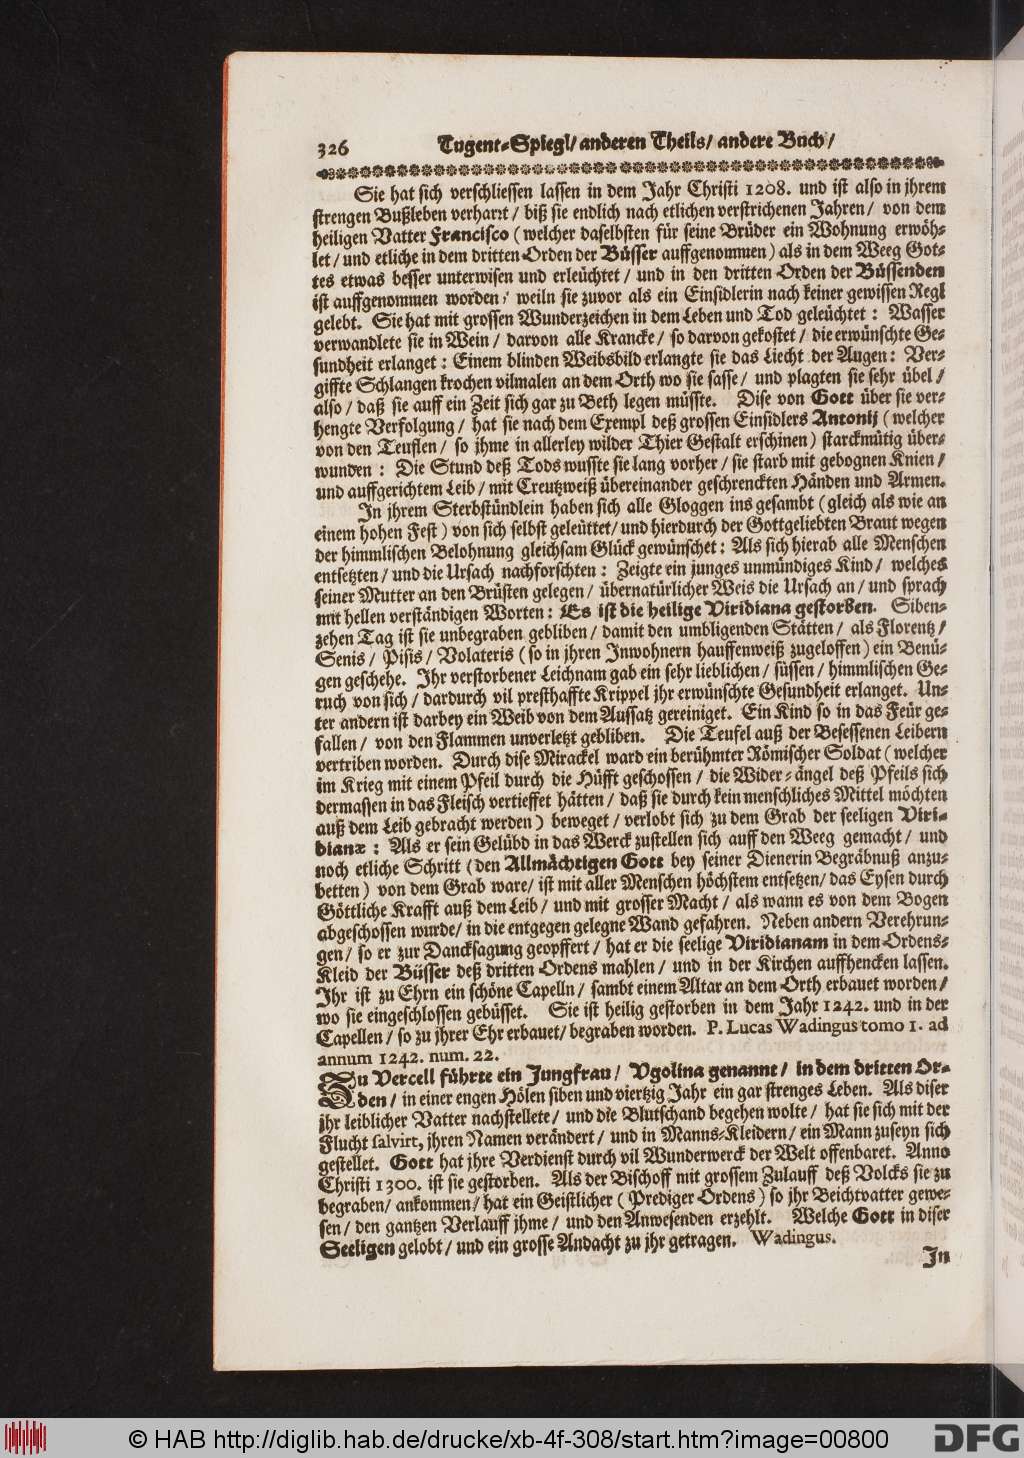 326 Tugent-Spiegl/ anderen Theils/ andere Buch/
Sie hat sich verschliessen lassen in dem Jahr Christi 1208. und ist also in jhrem
strengen Bußleben verharrt / biß sie endlich nach etlichen verstrichenen Jahren / von dem
heiligen Vatter Francisco ( welcher daselbsten für seine Brüder ein Wohnung erwöh-
let / und etliche in dem dritten Orden der Büsser auffgenommen ) als in dem Weeg Got-
tes etwas besser unterwisen und erleüchtet / und in den dritten Orden der Büssenden
ist auffgenommen worden / weiln sie zuvor als ein Einsidlerin nach keiner gewissen Regl
gelebt. Sie hat mit grossen Wunderzeichen in dem Leben und Tod geleüchtet : Wasser
verwandlete sie in Wein / darvon alle Krancke / so darvon gekostet / die erwünschte Ge-
sundheit erlanget : Einem blinden Weibsbild erlangte sie das Liecht der Augen : Ver-
giffte Schlangen krochen vilmalen an dem Orth wo sie sasse / und plagten sie sehr übel /
also / daß sie auff ein Zeit sich gar zu Beth legen müsste. Dise von Gott über sie ver-
hengte Verfolgung / hat sie nach dem Exempl deß grossen Einsidlers Antonij ( welcher
von den Teuflen / so jhme in allerley wilder Thier Gestalt erschinen ) starckmütig über-
wunden : Die Stund deß Tods wusste sie lang vorher / sie starb mit gebognen Knien /
und auffgerichtem Leib / mit Creutzweiß übereinander geschrenckten Händen und Armen.
In jhrem Sterbstündlein haben sich alle Gloggen ins gesambt ( gleich als wie an
einem hohen Fest ) von sich selbst geleüttet / und hierdurch der Gottgeliebten Braut wegen
der himmlischen Belohnung gleichsam Glück gewünschet : Als sich hierab alle Menschen
entsetzten / und die Ursach nachforschten : Zeigte ein junges unmündiges Kind / welches
seiner Mutter an den Brüsten gelegen / übernatürlicher Weis die Ursach an / und sprach
mit hellen verständigen Worten : Es ist die heilige Viridiana gestorben. Siben-
zehen Tag ist sie unbegraben gebliben / damit den umbligenden Stätten / als Florentz /
Senis / Pisis / Volateris ( so in jhren Inwohnern hauffenweiß zugeloffen ) ein Benü-
gen geschehe. Ihr verstorbener Leichnam gab ein sehr lieblichen / süssen / himmlischen Ge-
ruch von sich / dardurch vil presthaffte Krippel jhr erwünschte Gesundheit erlanget. Un-
ter andern ist darbey ein Weib von dem Aussatz gereiniget. Ein Kind so in das Feür ge-
fallen / von den Flammen unverletzt gebliben. Die Teufel auß der Besessenen Leibern
vertriben worden. Durch dise Mirackel ward ein berühmter Römischer Soldat ( welcher
im Krieg mit einem Pfeil durch die Hüfft geschossen / die Wider-ängel deß Pfeils sich
dermassen in das Fleisch vertieffet hätten / daß sie durch kein menschliches Mittel möchten
auß dem Leib gebracht werden ) beweget / verlobt sich zu dem Grab der seeligen Viri-
dianæ : Als er sein Gelübd in das Werck zustellen sich auff den Weeg gemacht / und
noch etliche Schritt ( den Allmächtigen Gott bey seiner Dienerin Begräbnuß anzu-
betten ) von dem Grab ware / ist mit aller Menschen höchstem entsetzen / das Eysen durch
Göttliche Krafft auß dem Leib / und mit grosser Macht / als wann es von dem Bogen
abgeschossen wurde / in die entgegen gelegne Wand gefahren. Neben andern Verehrun-
gen / so er zur Dancksagung geopffert / hat er die seelige Viridianam in dem Ordens-
Kleid der Büsser deß dritten Ordens mahlen / und in der Kirchen auffhencken lassen.
Ihr ist zu Ehrn ein schöne Capelln / sambt einem Altar an dem Orth erbauet worden /
wo sie eingeschlossen gebüsset. Sie ist heilig gestorben in dem Jahr 1242. und in der
Capellen / so zu jhrer Ehr erbauet / begraben worden. P. Lucas Wadingus tomo 1. ad
annum 1242. num. 22.
Zu Vercell führte ein Jungfrau / Ugolina genannt / in dem dritten Or-
den / in einer engen Hölen siben und viertzig Jahr ein gar strenges Leben. Als diser
jhr leiblicher Vatter nachstellete / und die Blutschand begehen wolte / hat sie sich mit der
Flucht salvirt, jhren Namen verändert / und in Manns-Kleidern / ein Mann zuseyn sich
gestellet. Gott hat jhre Verdienst durch vil Wunderwerck der Welt offenbaret. Anno
Christi 1300. ist sie gestorben. Als der Bischoff mit grossem Zulauff deß Volcks sie zu
begraben / ankommen / hat ein Geistlicher ( Prediger Ordens ) so jhr Beichtvatter gewe-
sen / den gantzen Verlauff jhme / und den Anwesenden erzehlt. Welche Gott in diser
Seeligen gelobt / und ein grosse Andacht zu jhr getragen. Wadingus.
In
© HAB http://diglib.hab.de/drucke/xb-4f-308/start.htm?image=00800
DFG